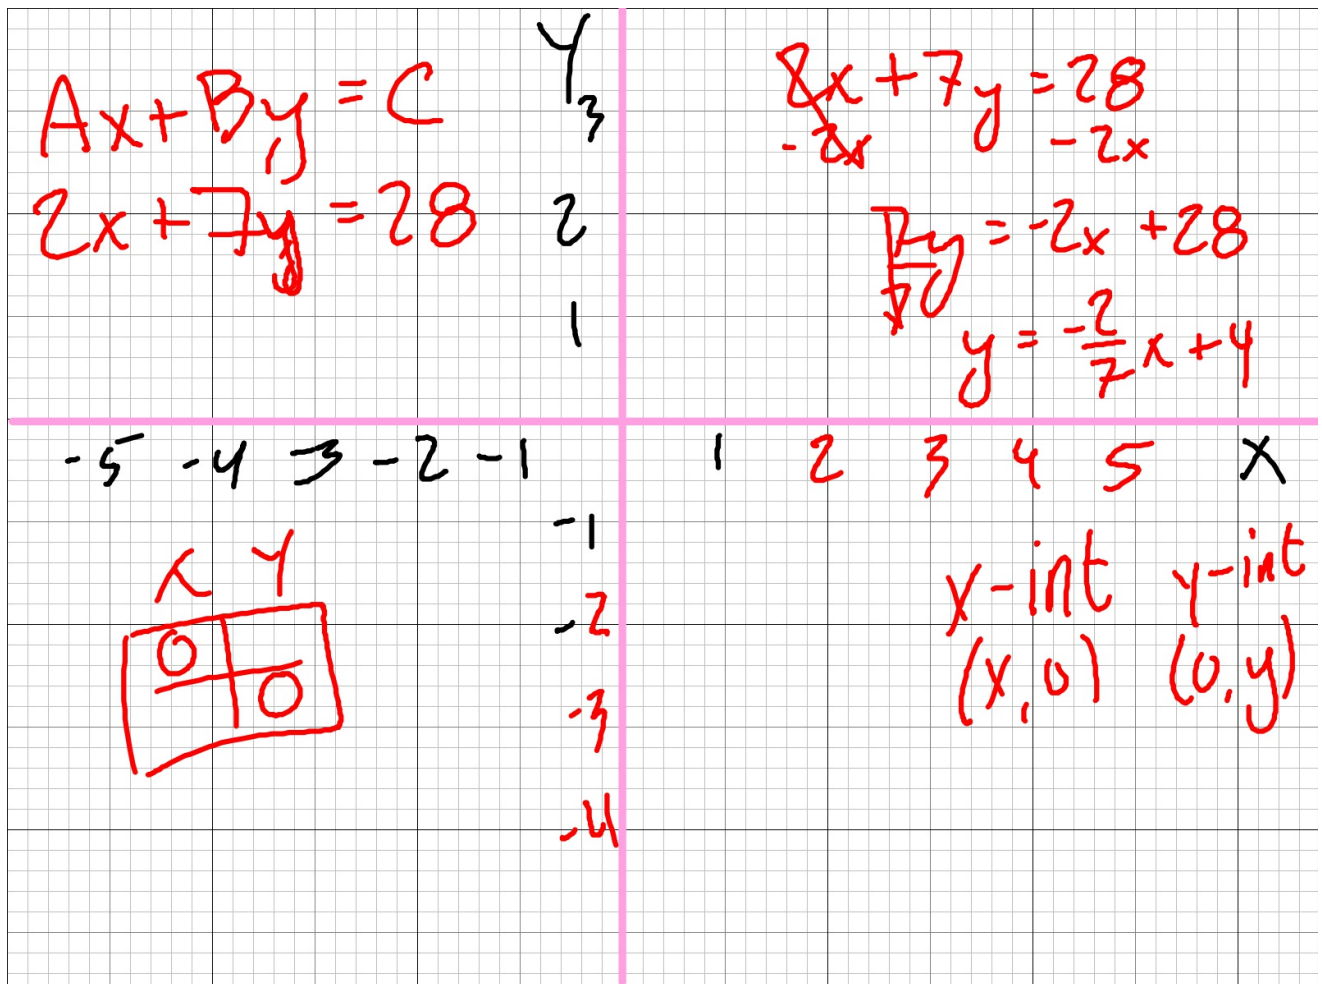 Ax+By=C
2x+7y=28
Y
3
2
1
2x+7y=28
-2x -2x
7y=-2x+28
7
y=-2/7x+4
-5 -4 -3 -2 -1 1 2 3 4 5 X
-1
-2
-3
-4
X Y
0
0
x-int y-int
(x,0) (0,y)